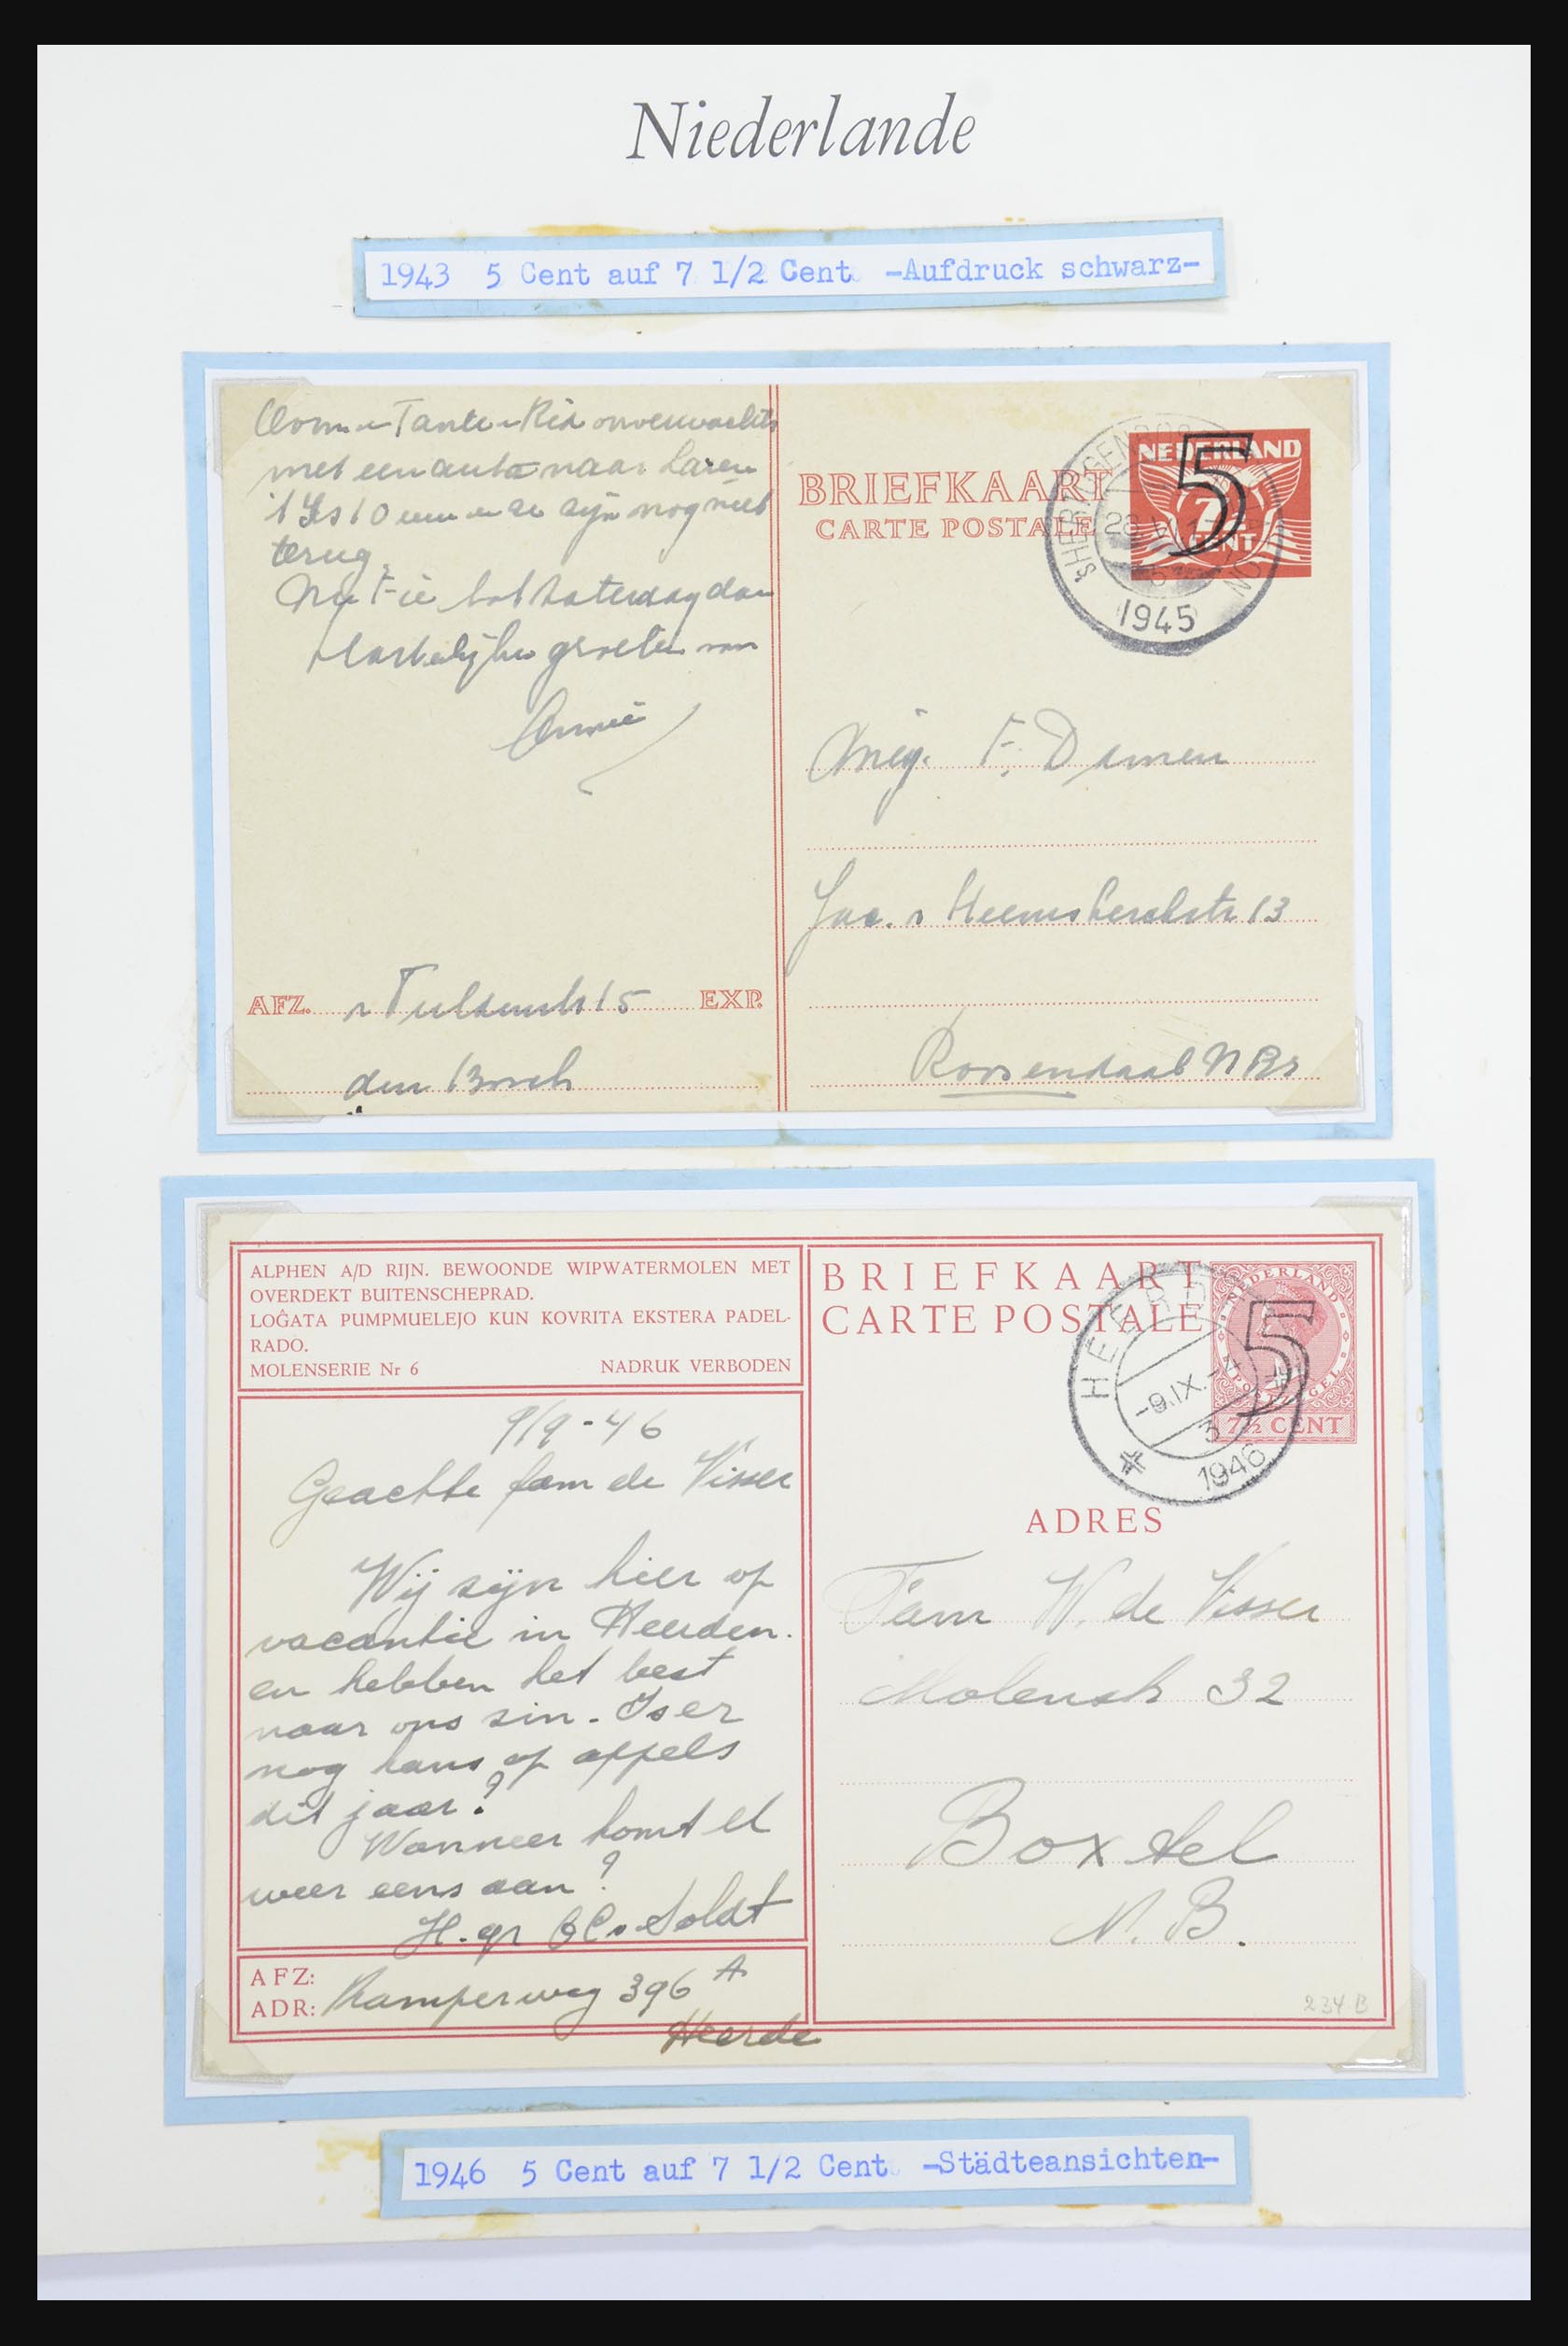 Niederlande
1943 5 Cent auf 7 1/2 Cent -Aufdruck schwarz-
Tante
met een auto naar
10 en zijn nog niet
terug.
Nu Fie tot Zaterdag dan
Hartelijke groeten van
Annie
AFZ. v Tulden str 15 EXP.
den Bosch
BRIEFKAART
CARTE POSTALE
NEDERLAND
7½
CENT
5
'S HERTOGENBOSCH STATION
1945
Mej. F. Damen
Jac. v Heemskerckstr 13
Roosendaal NBr
ALPHEN A/D RIJN. BEWOONDE WIPWATERMOLEN MET
OVERDEKT BUITENSCHEPRAD.
LOĜATA PUMPMUELEJO KUN KOVRITA EKSTERA PADEL-
RADO.
MOLENSERIE Nr 6 NADRUK VERBODEN
9/9-46
Geachte fam de Visser
Wij zijn hier op
vacantie in Heerden.
en hebben het best
naar ons zin. Is er
nog kans op appels
dit jaar?
Wanneer komt U
weer eens aan?
H. gr v Soldt
AFZ:
ADR: Kamperweg 396 A
Heerde
BRIEFKAART
CARTE POSTALE
NEDERLAND
7½ CENT
5
HEERDE
-9.IX.-4
1946
ADRES
Fam W. de Visser
Molenstr 32
Boxtel
N.B.
234 B
1946 5 Cent auf 7 1/2 Cent -Städteansichten-